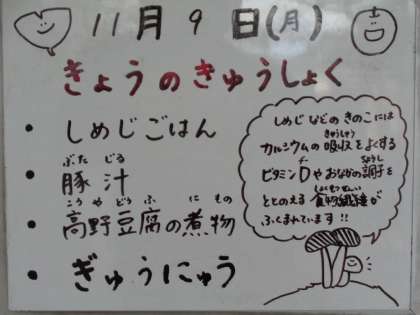 11月9日(月)
きょうのきゅうしょく
• しめじごはん
ぶた じる
• 豚汁
こうやどうふ にもの
• 高野豆腐の煮物
• ぎゅうにゅう
しめじなどのきのこには
きゅうしゅう
カルシウムの吸収をよくする
ちょうし
ビタミンDやおなかの調子を
しょくもつせんい
ととのえる食物繊維が
ふくまれています!!